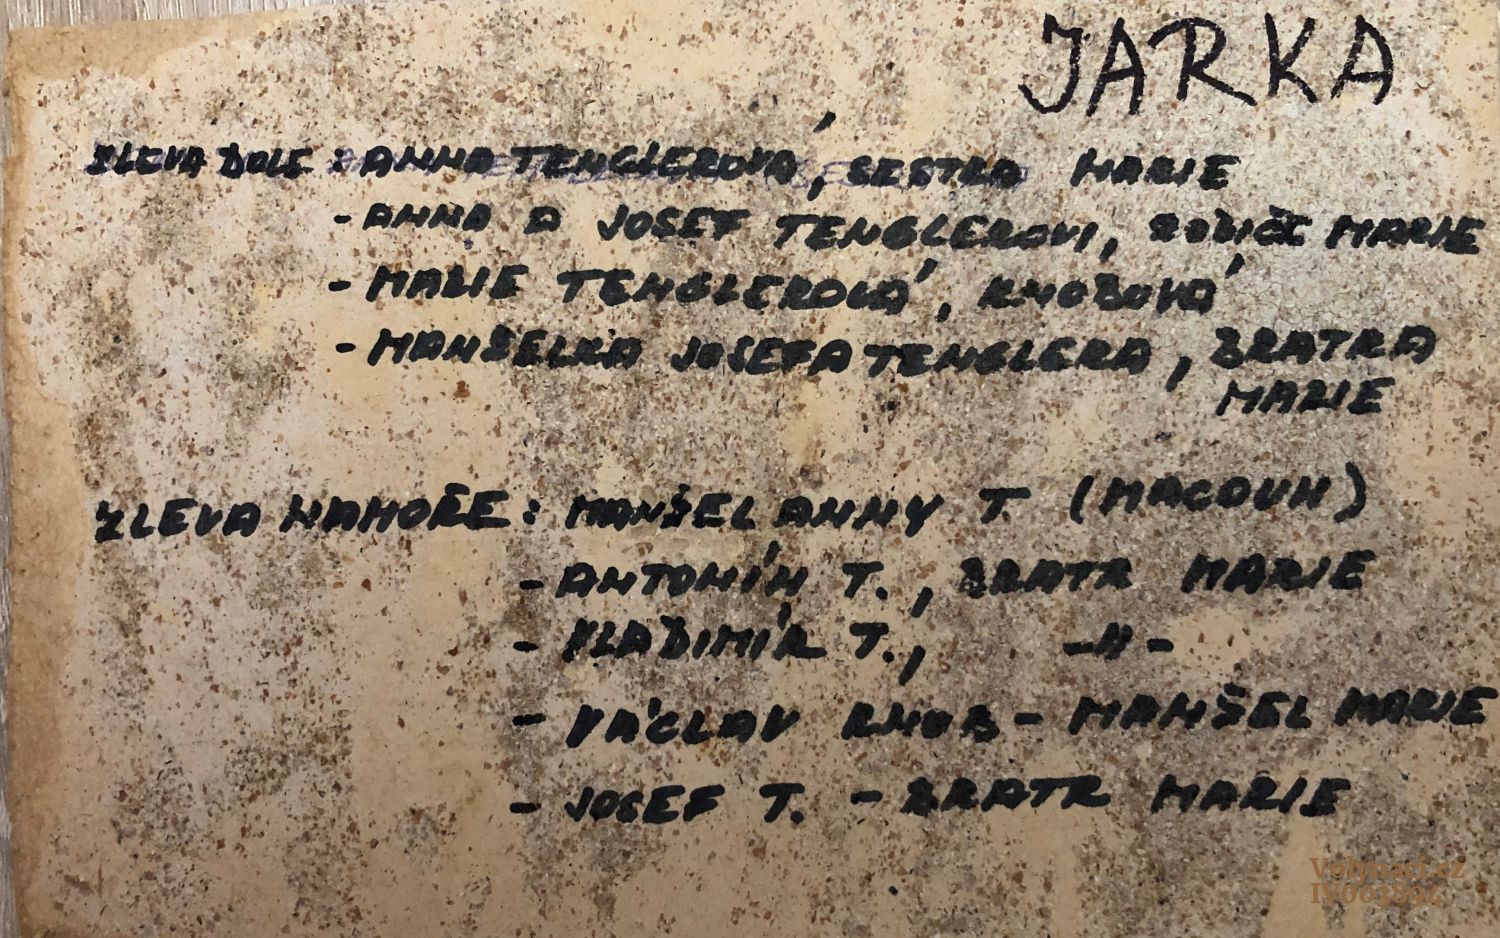 JARKA
ZLEVA DOLE: ANNA TENGLEROVÁ, SESTRA MARIE
- ANNA A JOSEF TENGLEROVI, RODIČE MARIE
- MARIE TENGLEROVÁ, KNOBOVÁ
- MANŽELKA JOSEFA TENGLERA, BRATRA
MARIE
ZLEVA NAHOŘE: MANŽEL ANNY T (MACOUN)
- ANTONÍN T., BRATR MARIE
- VLADIMÍR T., -"-
- VÁCLAV KNOB - MANŽEL MARIE
- JOSEF T. - BRATR MARIE
Volynaci.cz
IV003894